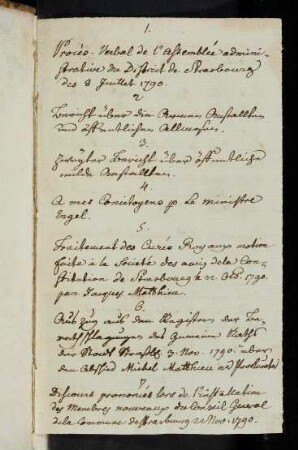 1.
Procès-Verbal de l'Assemblée admini-
strative du District de Strasbourg
des 8 Juillet 1790.
2
Bericht über die Armen Anstalten
und öffentlichen Allmosen.
3.
Zweyter Bericht über öffentliche
milde Anstalten.
4.
A mes Concitoyens p. Le ministre
Engel.
5.
Traitement des Curés Royaux motion
faite à la Société des amis de la Con-
stitution de Strasbourg le 12 Oct. 1790.
par Jacques Matthieu.
6.
Auszug aus den Registern der Be-
rathschlagungen des Gemeine Raths
der Stadt Strasb. 3. Nov. 1790. über
den Abschied Michel Matthieu als Procurator
7
Discours prononcés lors de l'installation
des Membres nouveaux du Conseil General
de la Commune de Strasbourg 22 Nov. 1790.